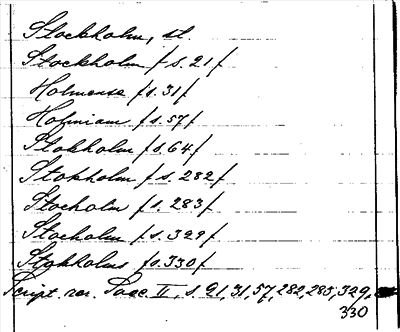 Stockholm, st.
Stockholm /s. 21/
Holmense /s. 31/
Hofniam /s. 57/
Stokholm /s. 64/
Stokholm /s. 282/
Stocholm /s. 283/
Stocholm /s. 329/
Stokholms /s. 330/
Script. rer. Svec. II, s. 21, 31, 57, 282, 283, 329,
330